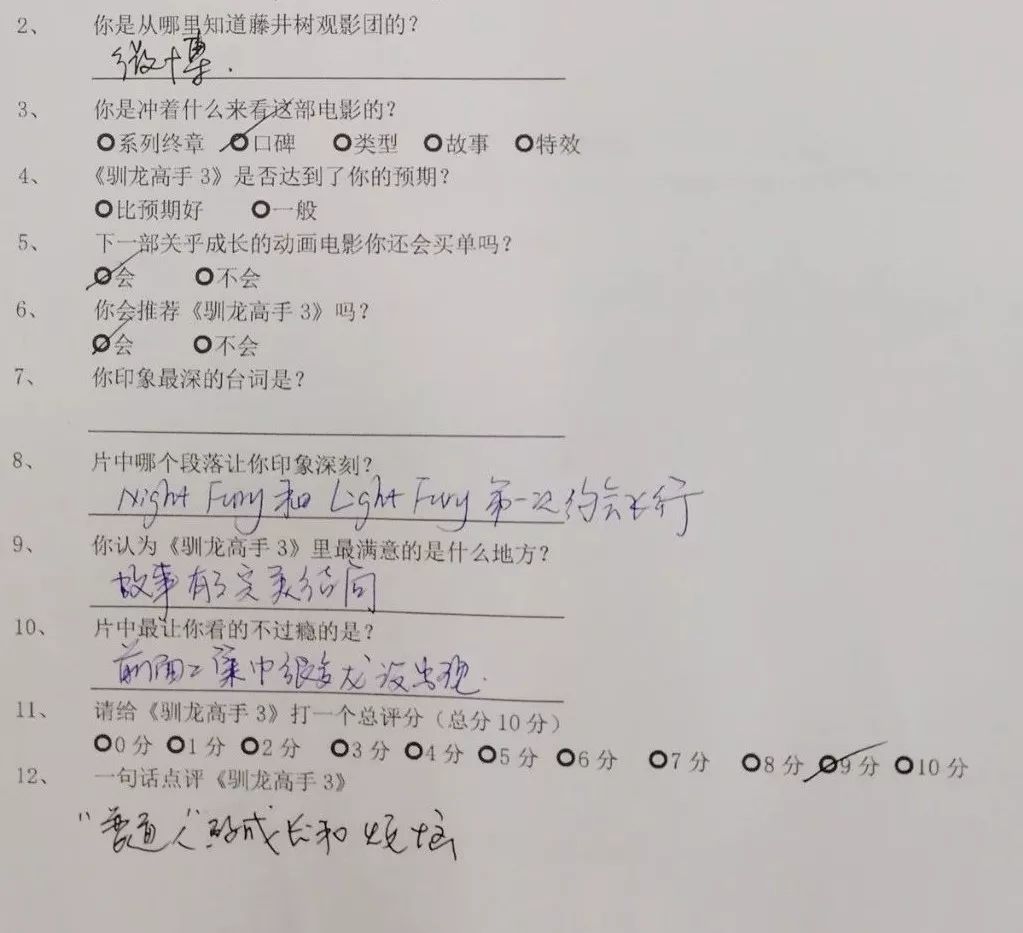 2、 你是从哪里知道藤井树观影团的?
微博.
3、 你是冲着什么来看这部电影的?
系列终章 口碑 类型 故事 特效
4、 《驯龙高手3》是否达到了你的预期?
比预期好 一般
5、 下一部关乎成长的动画电影你还会买单吗?
会 不会
6、 你会推荐《驯龙高手3》吗?
会 不会
7、 你印象最深的台词是?
8、 片中哪个段落让你印象深刻?
Night Fury 和 Light Fury 第一次约会飞行
9、 你认为《驯龙高手3》里最满意的是什么地方?
故事有了完美结局
10、 片中最让你看的不过瘾的是?
前面二集中很多龙没出现.
11、 请给《驯龙高手3》打一个总评分（总分10分）
0分 1分 2分 3分 4分 5分 6分 7分 8分 9分 10分
12、 一句话点评《驯龙高手3》
"普通人"的成长和烦恼